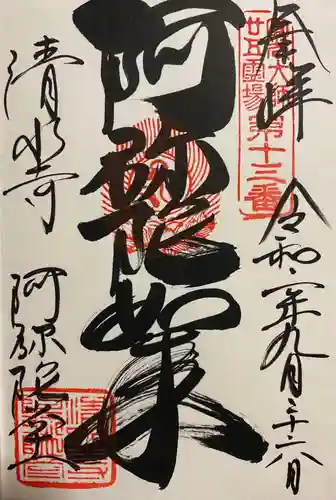 奉拝
法然上人
廿五霊場第十三番
令和二年九月二十六日
阿弥陀如来
清水寺
阿弥陀堂